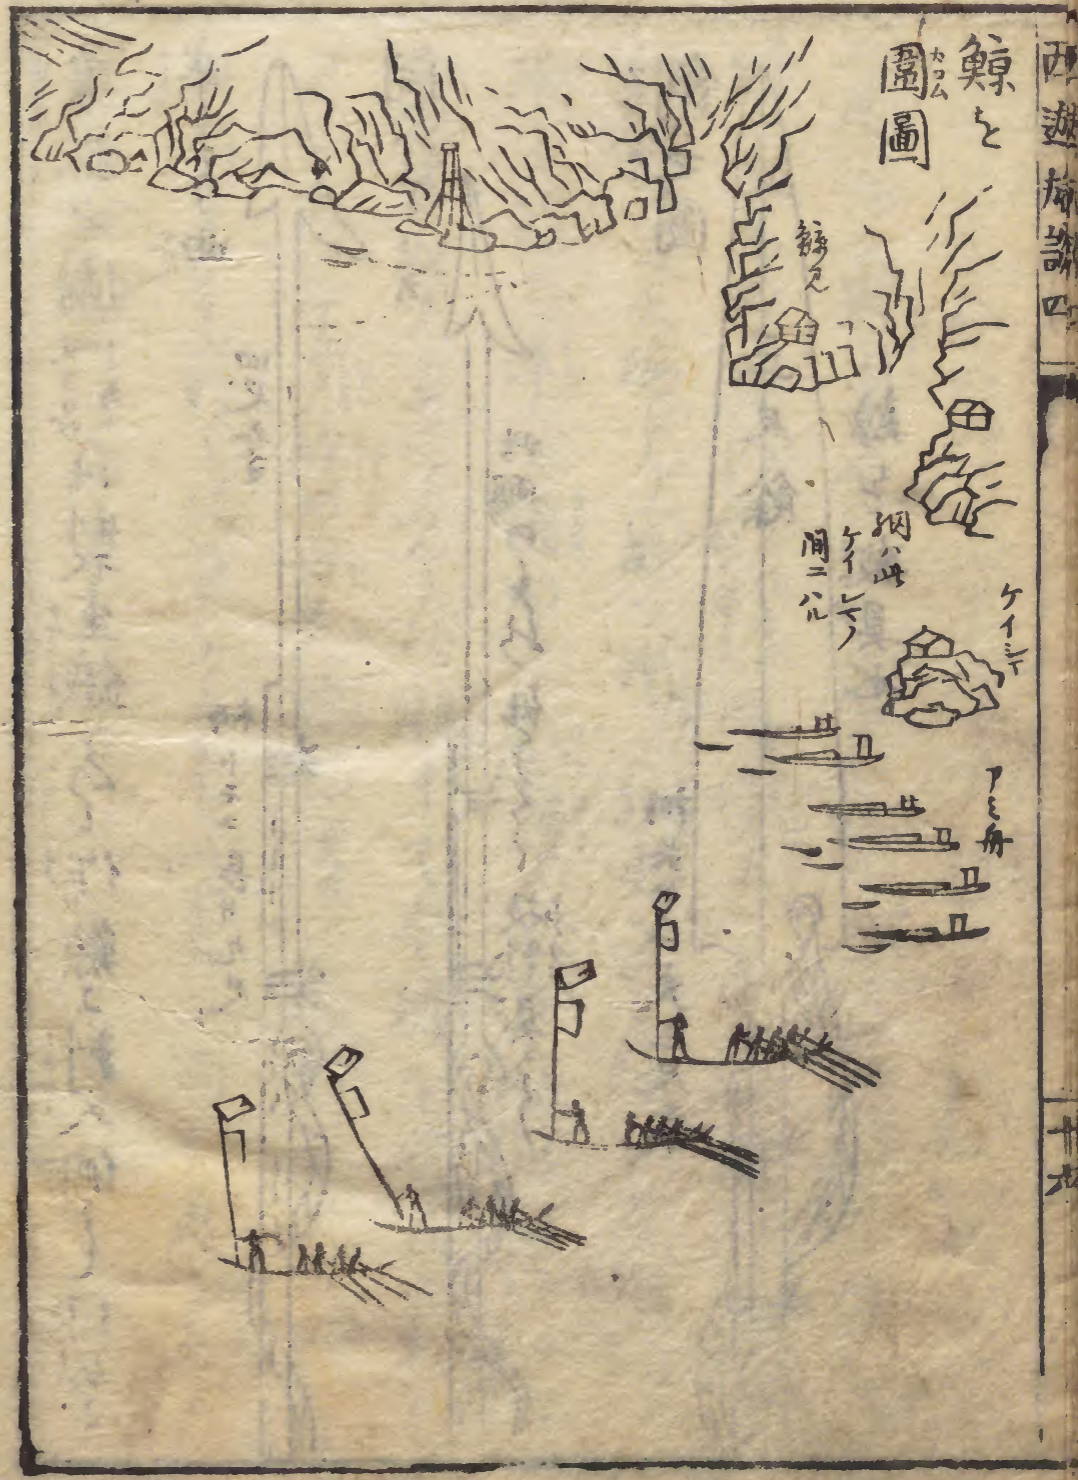 西遊旅譚四
鯨を
圍圖
カコム
鯨見
網ハ此
ケイシヤノ
間ニハル
ケイシヤ
アミ舟
十六